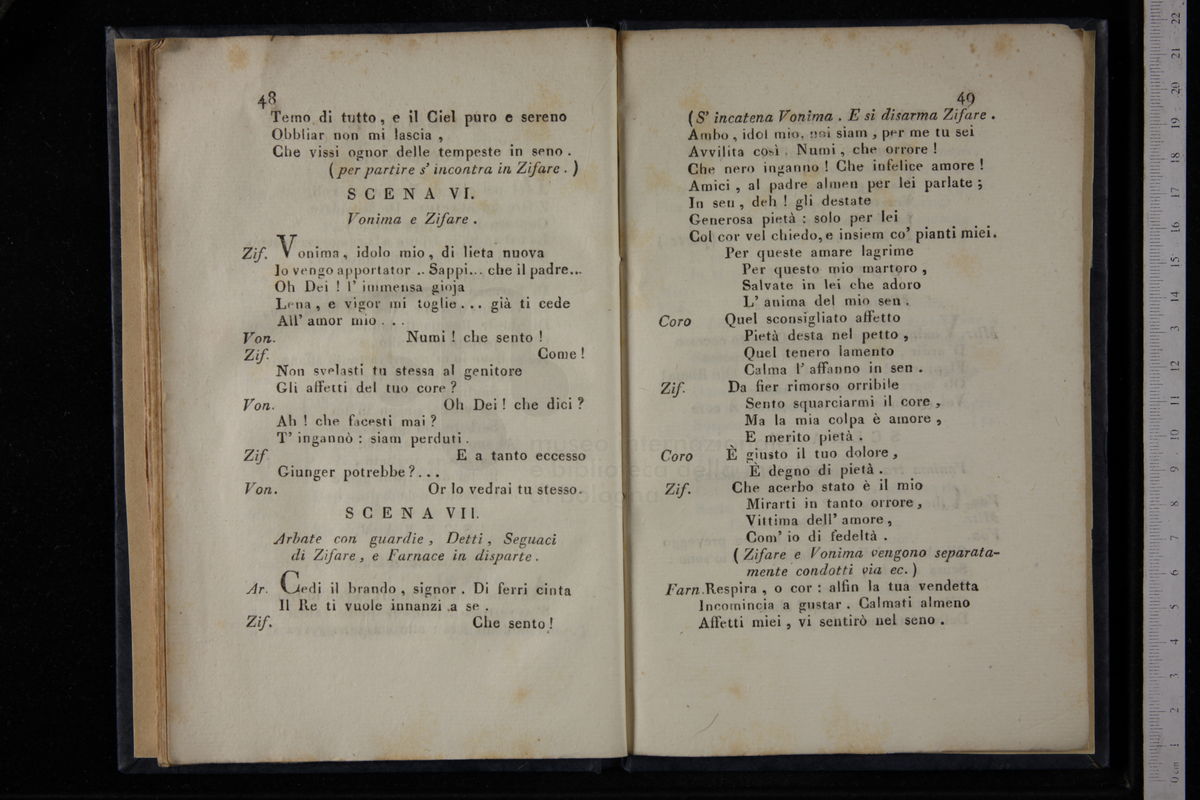 48
Temo di tutto, e il Ciel puro e sereno
Obbliar non mi lascia,
Che vissi ognor delle tempeste in seno.
(per partire s' incontra in Zifare.)
SCENA VI.
Vonima e Zifare.
Zif. Vonima, idolo mio, di lieta nuova
Io vengo apportator .. Sappi... che il padre...
Oh Dei! l' immensa gioja
Lena, e vigor mi toglie... già ti cede
All' amor mio...
Von. Numi! che sento!
Zif. Come!
Non svelasti tu stessa al genitore
Gli affetti del tuo core?
Von. Oh Dei! che dici?
Ah! che facesti mai?
T' ingannò: siam perduti.
Zif E a tanto eccesso
Giunger potrebbe?...
Von. Or lo vedrai tu stesso.
SCENA VII.
Arbate con guardie, Detti, Seguaci
di Zifare, e Farnace in disparte.
Ar. Cedi il brando, signor. Di ferri cinta
Il Re ti vuole innanzi a se.
Zif. Che sento!
49
(S' incatena Vonima. E si disarma Zifare.
Ambo, idol mio, noi siam, per me tu sei
Avvilita così. Numi, che orrore!
Che nero inganno! Che infelice amore!
Amici, al padre almen per lei parlate;
In seu, deh! gli destate
Generosa pietà: solo per lei
Col cor vel chiedo, e insiem co' pianti miei.
Per queste amare lagrime
Per questo mio martoro,
Salvate in lei che adoro
L' anima del mio sen.
Coro Quel sconsigliato affetto
Pietà desta nel petto,
Quel tenero lamento
Calma l' affanno in sen.
Zif. Da fier rimorso orribile
Sento squarciarmi il core,
Ma la mia colpa è amore,
E merito pietà.
Coro È giusto il tuo dolore,
È degno di pietà.
Zif. Che acerbo stato è il mio
Mirarti in tanto orrore,
Vittima dell' amore,
Com' io di fedeltà.
(Zifare e Vonima vengono separata-
mente condotti via ec.)
Farn. Respira, o cor: alfin la tua vendetta
Incomincia a gustar. Calmati almeno
Affetti miei, vi sentirò nel seno.
museo internazio
e biblioteca della
bologna
0 cm 1 2 3 4 5 6 7 8 9 10 11 12 13 14 15 16 17 18 19 20 21 22